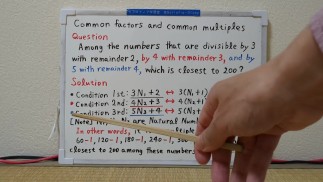 Common factors and common multiples
Question
Among the numbers that are divisible by 3
with remainder 2, by 4 with remainder 3, and by
5 with remainder 4, which is closest to 200?
Solution
• Condition 1st: 3N₁+2 ↔ 3(N₁+1
• Condition 2nd: 4N₂+3 ↔ 4(N₂+1
• Condition 3rd: 5N₃+4 ↔ 5(N₃+1
[Note] are Natural Num
In other words, it
60-1, 120-1, 180-1, 240-1, 300
closest to 200 among these numbers